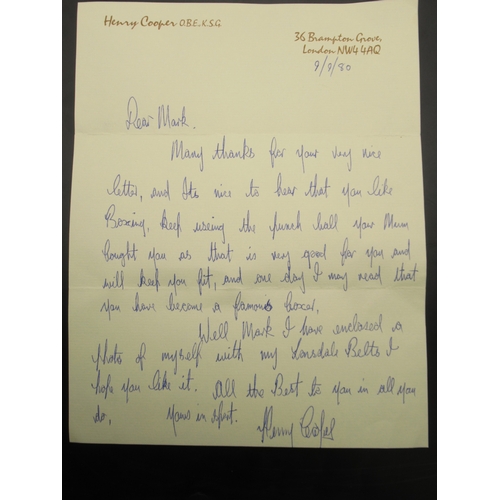 Henry Cooper O.B.E., K.S.G.
36 Brampton Grove,
London NW4 4AQ
9/9/80
Dear Mark.
Many thanks for your very nice
letter, and Its nice to hear that you like
Boxing, keep using the punch ball your Mum
bought you as that is very good for you and
will keep you fit, and one day I may read that
you have become a famous boxer.
Well Mark I have enclosed a
photo of myself with my Lonsdale Belts I
hope you like it. All the Best to you in all you
do, Yours in sport.
Henry Cooper